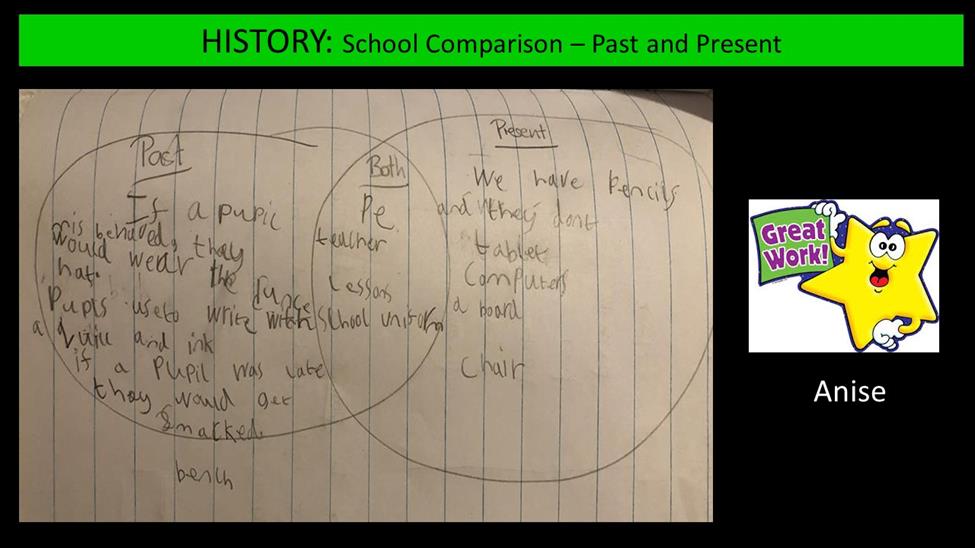 HISTORY: School Comparison – Past and Present
Past
If a pupil
misbehaved, they
would wear the dunce
hat.
Pupils use to write with
a quill and ink
if a Pupil was late
they would get
smacked.
bench
Both
Pe
teacher
Lessons
School uniform
Present
We have Pencils
and they dont
tablet
Computers
a board
Chair
Great
Work!
Anise